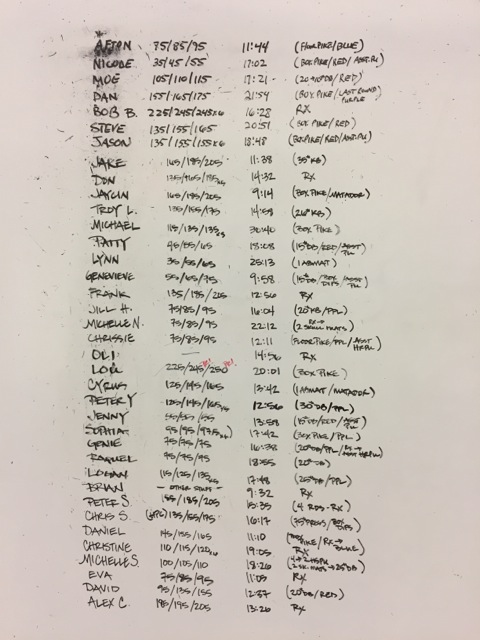 AFTON 75/85/95 11:44 (FLOOR PIKE/BLUE)
NICOLE 35/45/55 17:02 (BOX PIKE/RED/ASST. PU)
MOE 105/110/115 17:21 (20#DB/RED)
DAN 155/165/175 21:54 (BOX PIKE/LAST ROUND PURPLE
BOB B. 225/245/245x6 16:28 RX
STEVE 135/155/165 20:51 (BOX PIKE/RED)
JASON 135/155/155x6 18:48 (BOX PIKE/RED/ASST. PU)
JAKE 165/185/205 11:38 (35#KB)
DON 14:32 RX
JAYLIN 165/185/205 9:14 (BOX PIKE/MATADOR)
TROY L. 135/155/175 14:58 (26#KB)
MICHAEL 115/135/135 30:40 (BOX PIKE)
PATTY 45/55/65 13:08 (15#DB/RED/ASST PU
LYNN 35/55/65 25:13 (1 ABMAT)
GENEVIEVE 55/65/75 9:58 (15#DB/BOX DIPS/ASST PU
FRANK 135/185/205 12:56 RX
JILL H. 75/85/95 16:04 (20#KB/PPL)
MICHELLE N. 75/85/95 22:12 (RX→ 2 SMALL MATS)
CHRISSIE 75/85/95 12:11 (FLOOR PIKE/PPL/ASST HRPU
OLI — 14:56 RX
LOU 225/245/250 20:01 (BOX PIKE)
CYRUS 125/145/165 13:42 (1 ABMAT/MATADOR)
PETER Y 125/145/165 12:56 (30#DB/PPL)
JENNY 13:58 (15#DB/RED/
SOPHIA 95/95/97.5 17:42 (BOX PIKE/PPL)
GENIE 75/75/75 16:38 (20#DB/PPL/ HRPU)
RAQUEL 75/75/95 18:55 (20#DB)
LOGAN 115/125/135 17:48 (25#DB/PPL)
BRIAN — OTHER STUFF — 9:32 RX
PETER S. 155/185/205 15:35 (4 RDS-RX)
CHRIS S. 135/155/175 16:17 (75#PRESS/BOX DIPS)
DANIEL 145/155/165 11:10 PIKE/RX→ BLUE)
CHRISTINE 110/115/120 19:05 RX
MICHELLE S. 100/105/110 18:26 25#DB)
EVA 75/85/95 11:05 RX
DAVID 95/135/155 12:37 (20#DB/RED)
ALEX C. 185/195/205 13:26 RX